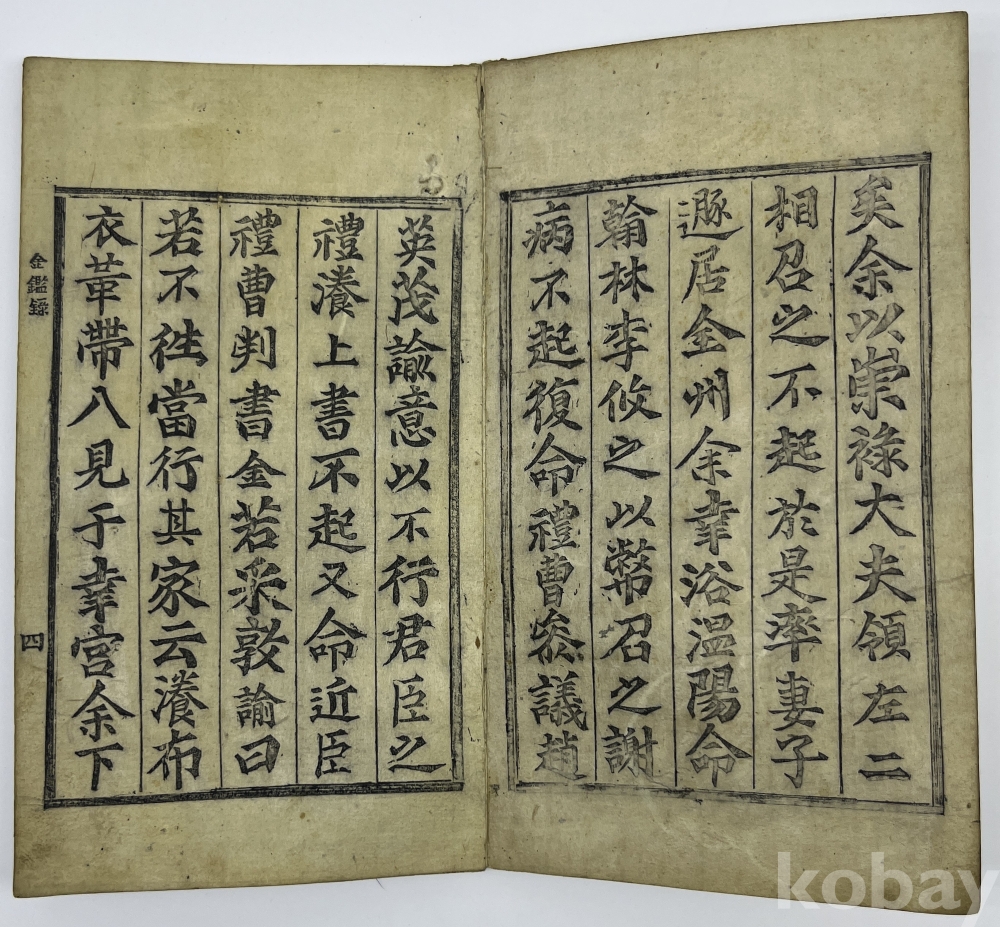 矣余以崇祿大夫領左二
相召之不起於是率妻子
遯居全州余幸浴溫陽命
翰林李攸之以幣召之謝
病不起復命禮曹叅議趙
英茂諭意以不行君臣之
禮瀁上書不起又命近臣
禮曹判書金若采敦諭曰
若不徃當行其家云瀁布
衣革帶入見于幸宮余下
金鑑錄
四
kobay